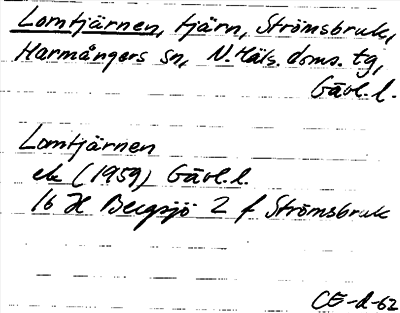 Lomtjärnen, tjärn, Strömsbruk,
Harmångers sn, N. Häls. doms. tg,
Gävl. l.
Lomtjärnen
ek (1959) Gävl. l.
16 H Bergsjö 2 f Strömsbruk
CG-d-62